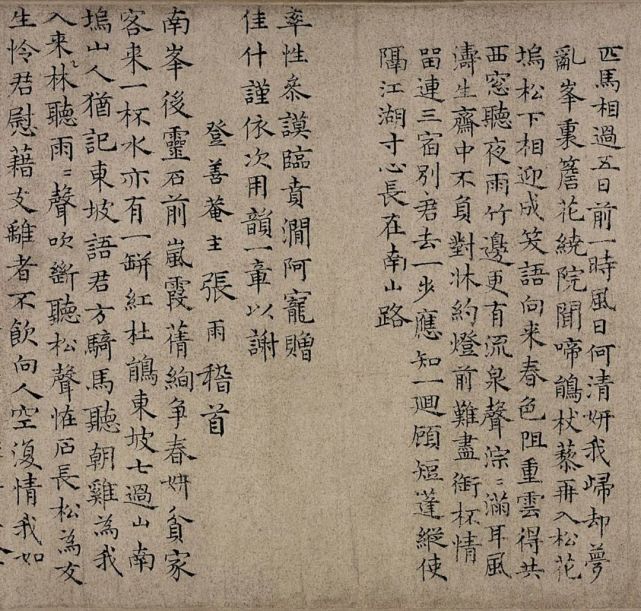 匹馬相過五日前一時風日何清妍我歸却夢
亂峯裏簷花繞院聞啼鵑杖藜再入松花
塢松下相迎成笑語向来春色阻重雲得共
西窓聽夜雨竹邊更有流泉聲淙〻滿耳風
濤生齋中不負對牀約燈前難盡銜杯情
留連三宿別君去一步應知一迴顧短蓬縱使
隔江湖寸心長在南山路
率性叅謨臨賁澗阿寵贈
佳什謹依次用韻一章以謝
登善菴主張雨稽首
南峯後靈石前嵐霞蒨絢争春妍貧家
客来一杯水亦有一缾紅杜鵑東坡七過山南
塢山人猶記東坡語君方騎馬聽朝雞為我
入来林聽雨〻聲吹斷聽松聲恠石長松為友
生怜君慰藉支離者不飲向人空復情我如